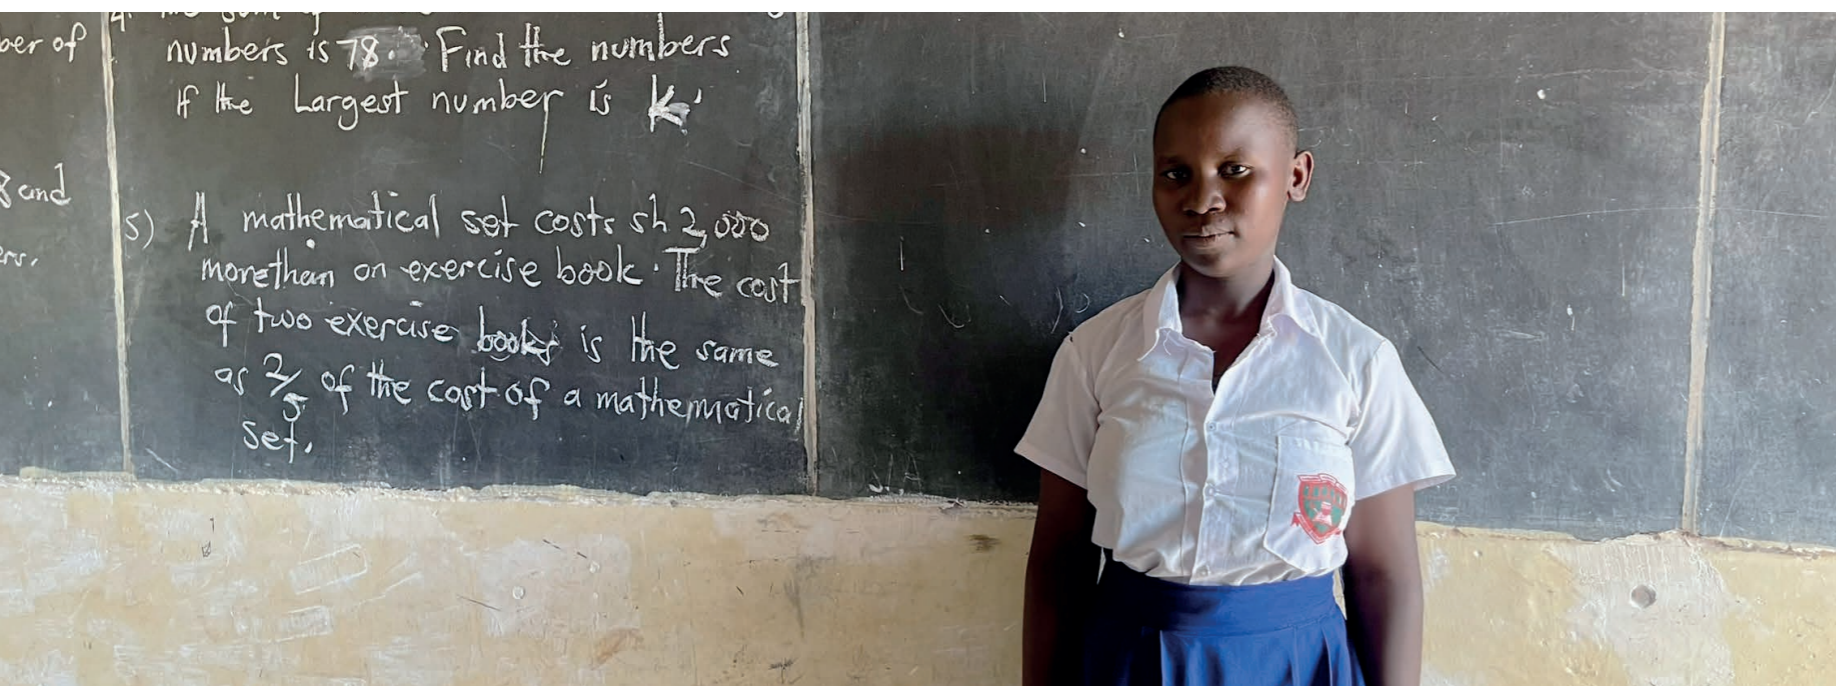 ber of
and
numbers is 78. Find the numbers
if the Largest number is K.
5) A mathematical set costs sh 2,000
morethan on exercise book. The cost
of two exercise books is the same
as 2/5 of the cost of a mathematical
set.